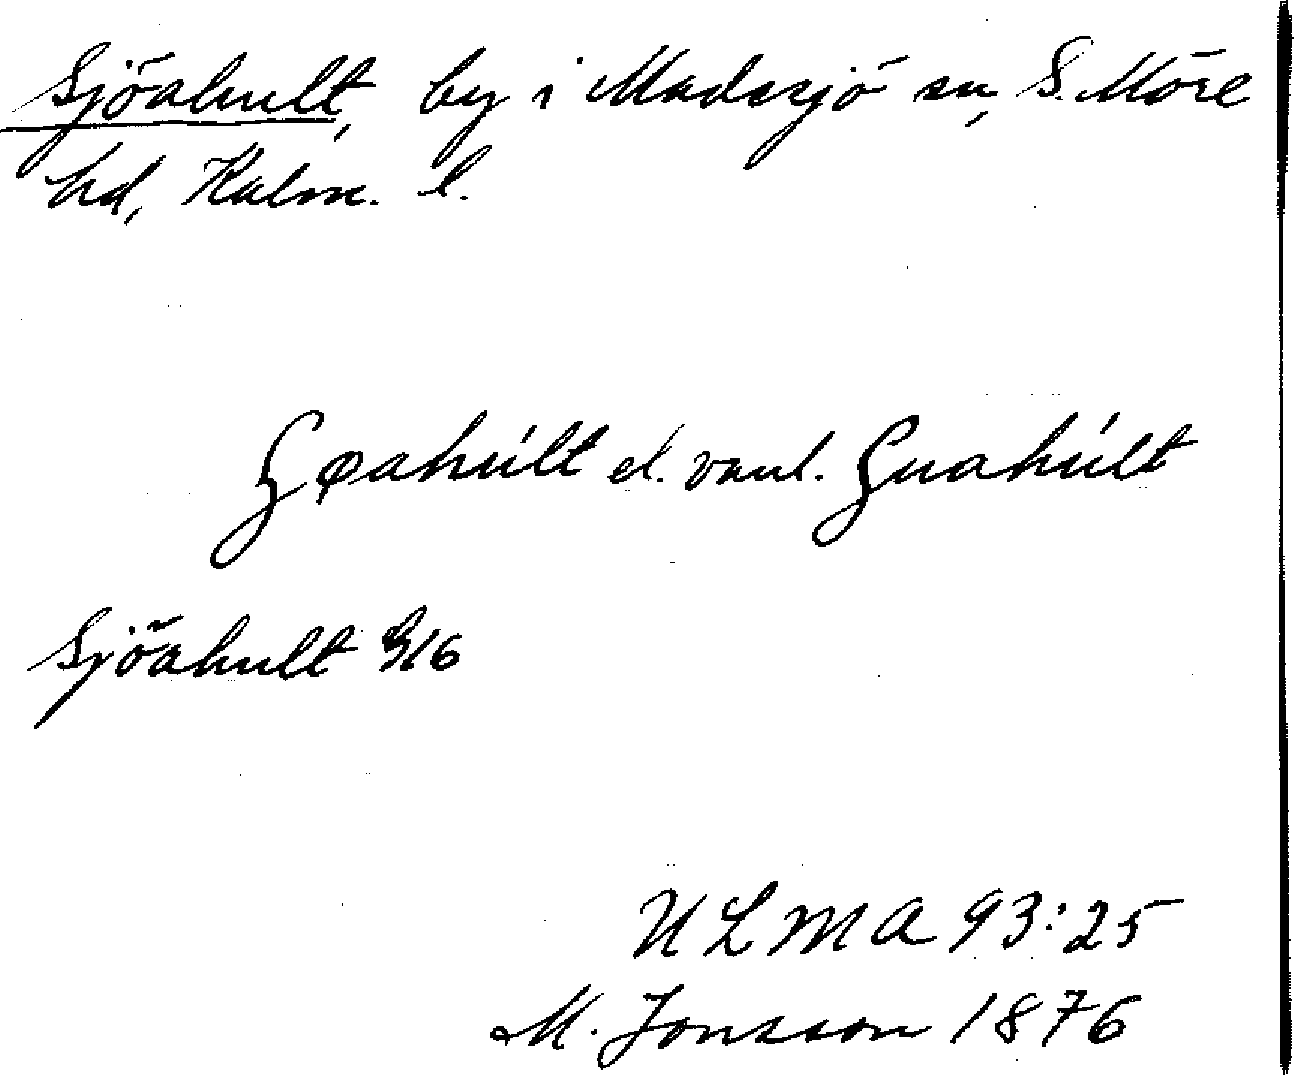 Sjöahult, by i Madesjö sn, S. Möre
hd, Kalm. l.
ʃøahúlt el. vanl. ʃuahúlt
Sjöahult 316
ULMA 93:25
M. Jonsson 1876